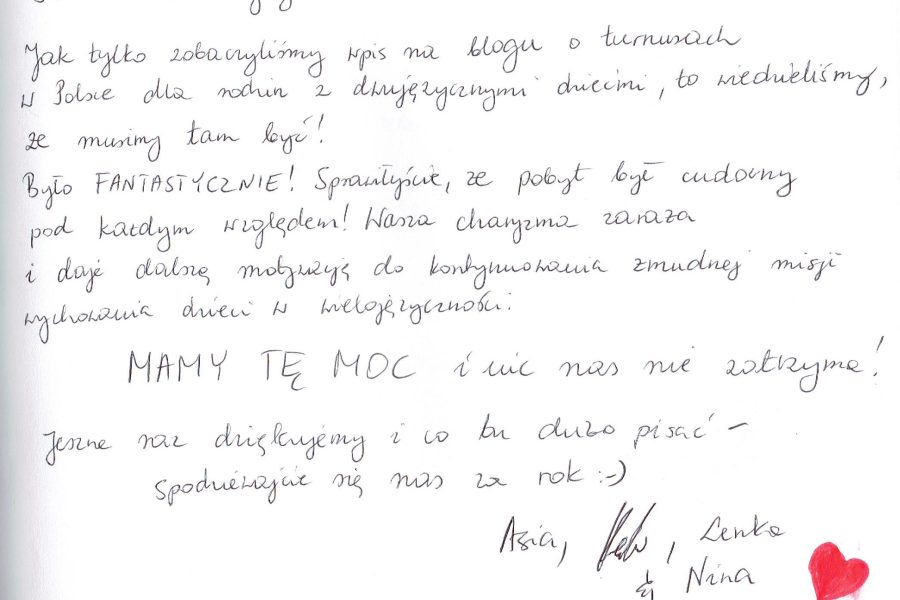 Jak tylko zobaczyliśmy wpis na blogu o turnusach
w Polsce dla rodzin z dwujęzycznymi dziećmi, to wiedzieliśmy,
że musimy tam być!
Było FANTASTYCZNIE! Sprawiłyście, że pobyt był cudowny
pod każdym względem! Wasza charyzma zaraża
i daje dalszą motywację do kontynuowania żmudnej misji
wychowania dzieci w wielojęzyczności.
MAMY TĘ MOC i nic nas nie zatrzyma!
Jeszcze raz dziękujemy i co tu dużo pisać –
spodziewajcie się nas za rok :-)
Asia, , Lenka
& Nina